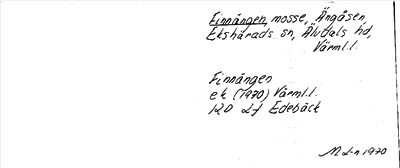 Finnängen, mosse, Ängåsen,
Ekshärads sn, Älvdals hd,
Värml.l.
Finnängen
ek (1970) Värml.l.
12D 2f Edebäck
M L-n 1970